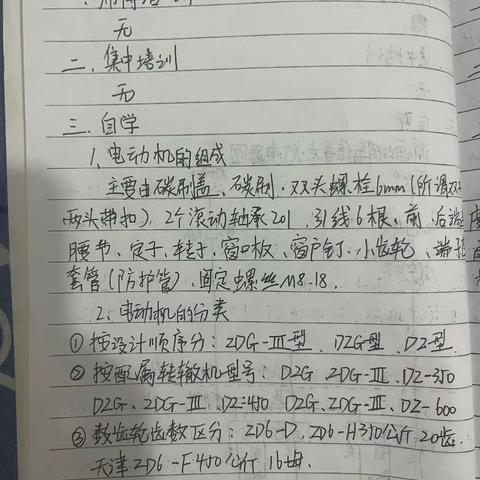 无
二、集中培训
无
三、自学
1、电动机的组成
主要由碳刷盖、碳刷、双头螺栓6mm(所谓双
两头带扣)、2个滚动轴承201、引线6根、前、后端
腰节、定子、转子、窗口板、窗户钉、小齿轮、端子
套管(防护管)、固定螺丝M8.18.
2、电动机的分类
①按设计顺序分:ZDG-III型、DZG型、DZ型
②按配属转辙机型号:DZG、ZDG-III、DZ-350
DZG、ZDG-III、DZ-450 DZG、ZDG-III、DZ-600
③数齿轮齿数区分:ZD6-D、ZD6-H350公斤 20齿
天津ZD6-F450公斤 16齿.